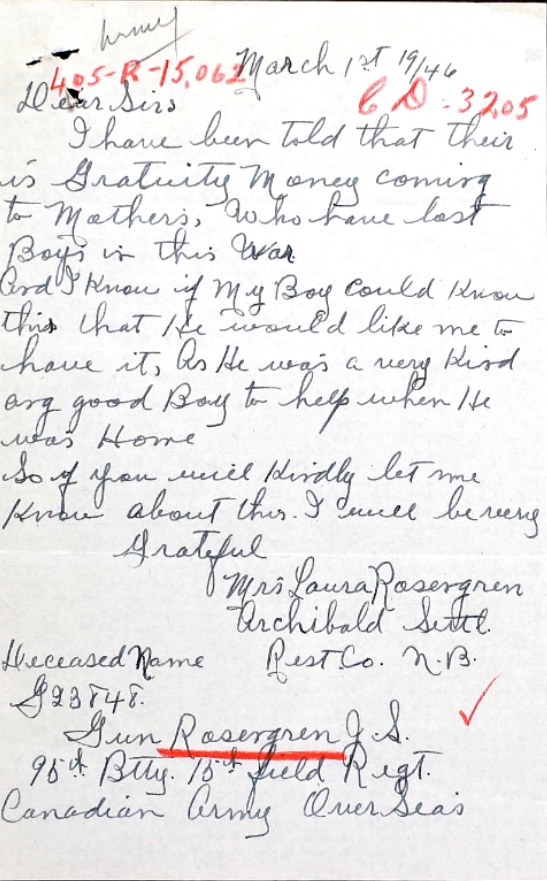 Army
405-R-15,062
March 1st 19/46
C D. 3205
Dear Sirs
I have been told that their
is Gratuity Money coming
to Mothers, Who have lost
Boys in this War
And I Know if My Boy could Know
this that He would like me to
have it, As He was a very Kind
ang good Boy to help when He
was Home
So if you will Kindly let me
Know about this. I will be very
Grateful
Mrs Laura Rosengren
Archibald Settl.
Rest. Co. N.B.
Deceased Name
G23848.
Gun Rosengren J. S.
95th Btty. 15th field Regt.
Canadian Army OverSeas